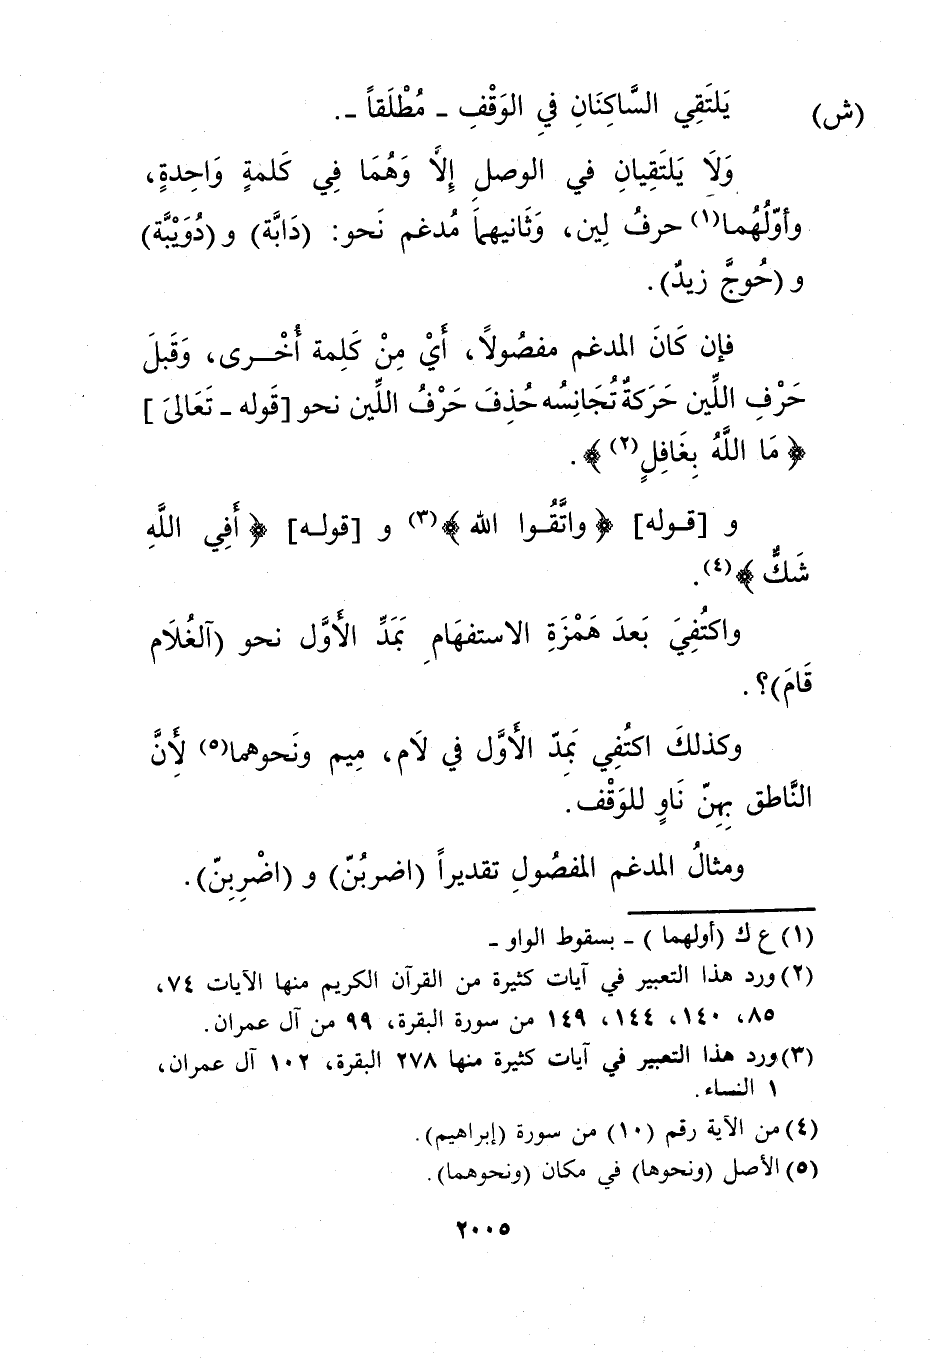 (ش) يَلتَقِي السَّاكِنَانِ فِي الوَقْفِ ـ مُطْلَقاً ـ.
وَلَا يَلتَقِيانِ في الوصلِ إِلَّا وَهُمَا فِي كَلمةٍ وَاحِدةٍ،
وأوّلُهُما(١) حرفُ لِين، وَثَانيهما مُدغم نَحو: (دَابَّة) و (دُوَيْبَّة)
و (حُوجَّ زيدٌ).
فإن كَانَ المدغم مفصُولاً، أَيْ مِنْ كَلِمة أُخْـرى، وَقَبلَ
حَرْفِ اللِّين حَرَكةٌ تُجَانِسُه حُذِفَ حَرْفُ اللِّين نحو [قَوله ـ تَعَالىَ]
﴿مَا اللَّهُ بِغَافِلٍ(٢)﴾.
و [قـوله] ﴿واتَّقُـوا الله﴾(٣) و [قولـه] ﴿أَفِي اللَّهِ
شَكٌّ﴾(٤).
واكتُفِيَ بَعدَ هَمْزَةِ الاستفهَامِ بَمَدِّ الأَوَّل نحو (آلغُلَام
قَامَ)؟.
وكذلكَ اكتُفِي بَمِدّ الأَوَّل في لَام، مِيم ونَحوهما(٥) لِأَنَّ
النَّاطق بِهِنّ نَاوٍ للوَقْف.
ومثالُ المدغم المفصُولِ تقديراً (اضربُنّ) و (اضْرِبِنّ).
(١) ع ك (أولهما) ـ بسقوط الواو ـ
(٢) ورد هذا التعبير في آيات كثيرة من القرآن الكريم منها الآيات ٧٤،
٨٥، ١٤٠، ١٤٤، ١٤٩ من سورة البقرة، ٩٩ من آل عمران.
(٣) ورد هذا التعبير في آيات كثيرة منها ٢٧٨ البقرة، ١٠٢ آل عمران،
١ النساء.
(٤) من الآية رقم (١٠) من سورة (إبراهيم).
(٥) الأصل (ونحوها) في مكان (ونحوهما).
٢٠٠٥